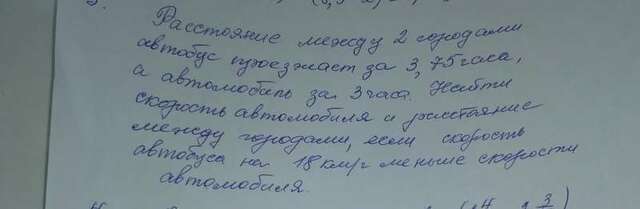 Расстояние между 2 городами
автобус проезжает за 3,75 часа,
а автомобиль за 3 часа. Найти
скорость автомобиля и расстояние
между городами, если скорость
автобуса на 18 км/ч меньше скорости
автомобиля.